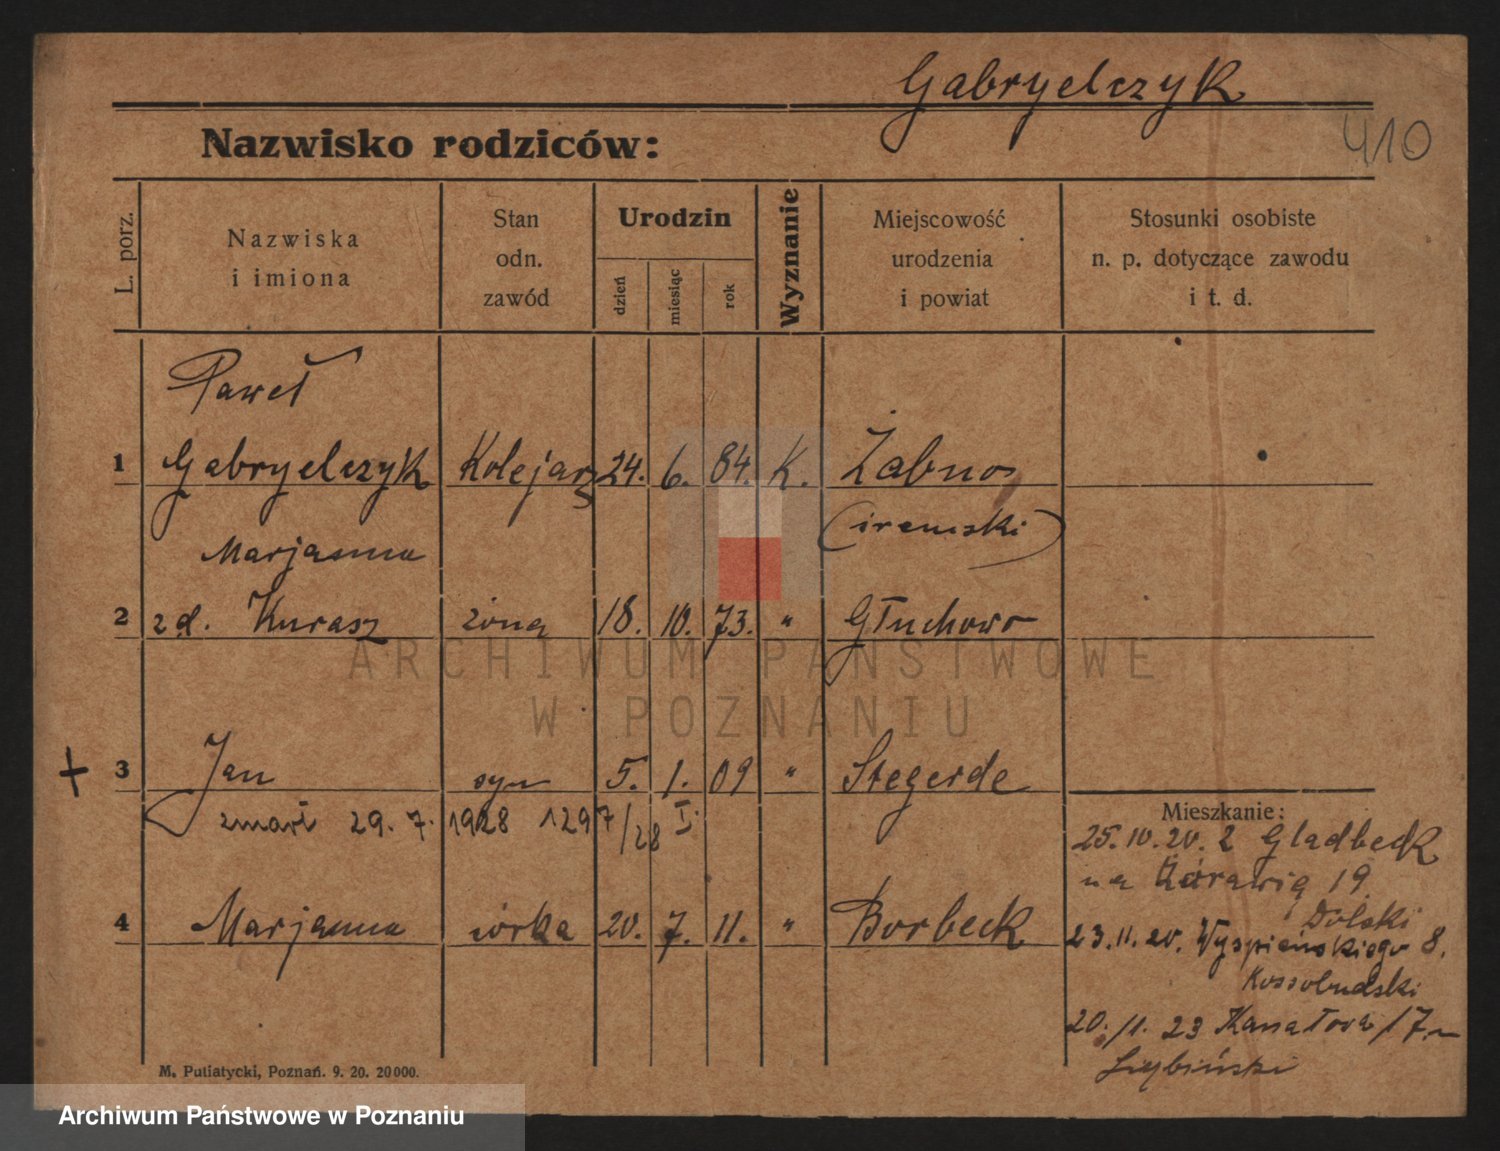 Gabryelczyk
410
Nazwisko rodziców:
L. porz.
Nazwiska
i imiona
Stan
odn.
zawód
Urodzin
dzień
miesiąc
rok
Wyznanie
Miejscowość
urodzenia
i powiat
Stosunki osobiste
n. p. dotyczące zawodu
i t. d.
Paweł
1 Gabryelczyk Kolejarz 24. 6. 84. K. Żabno
(śremski)
Marjanna
2 zd. Kurasz żona 18. 10. 73. " Głuchowo
ARCHIWUM PAŃSTWOWE
W POZNANIU
+ 3 Jan syn 5. 1. 09 " Stegerde
zmarł 29. 7. 1928 1297/28 I.
4 Marjanna córka 20. 7. 11. " Borbeck
Mieszkanie:
25.10.20. z Gladbeck
na Żórawią 19
Dolski
23.11.20. Wyspiańskiego 8.
Kossobudski
20./11. 23 Kanałowa 17
M. Putiatycki, Poznań. 9. 20. 20000.
Archiwum Państwowe w Poznaniu